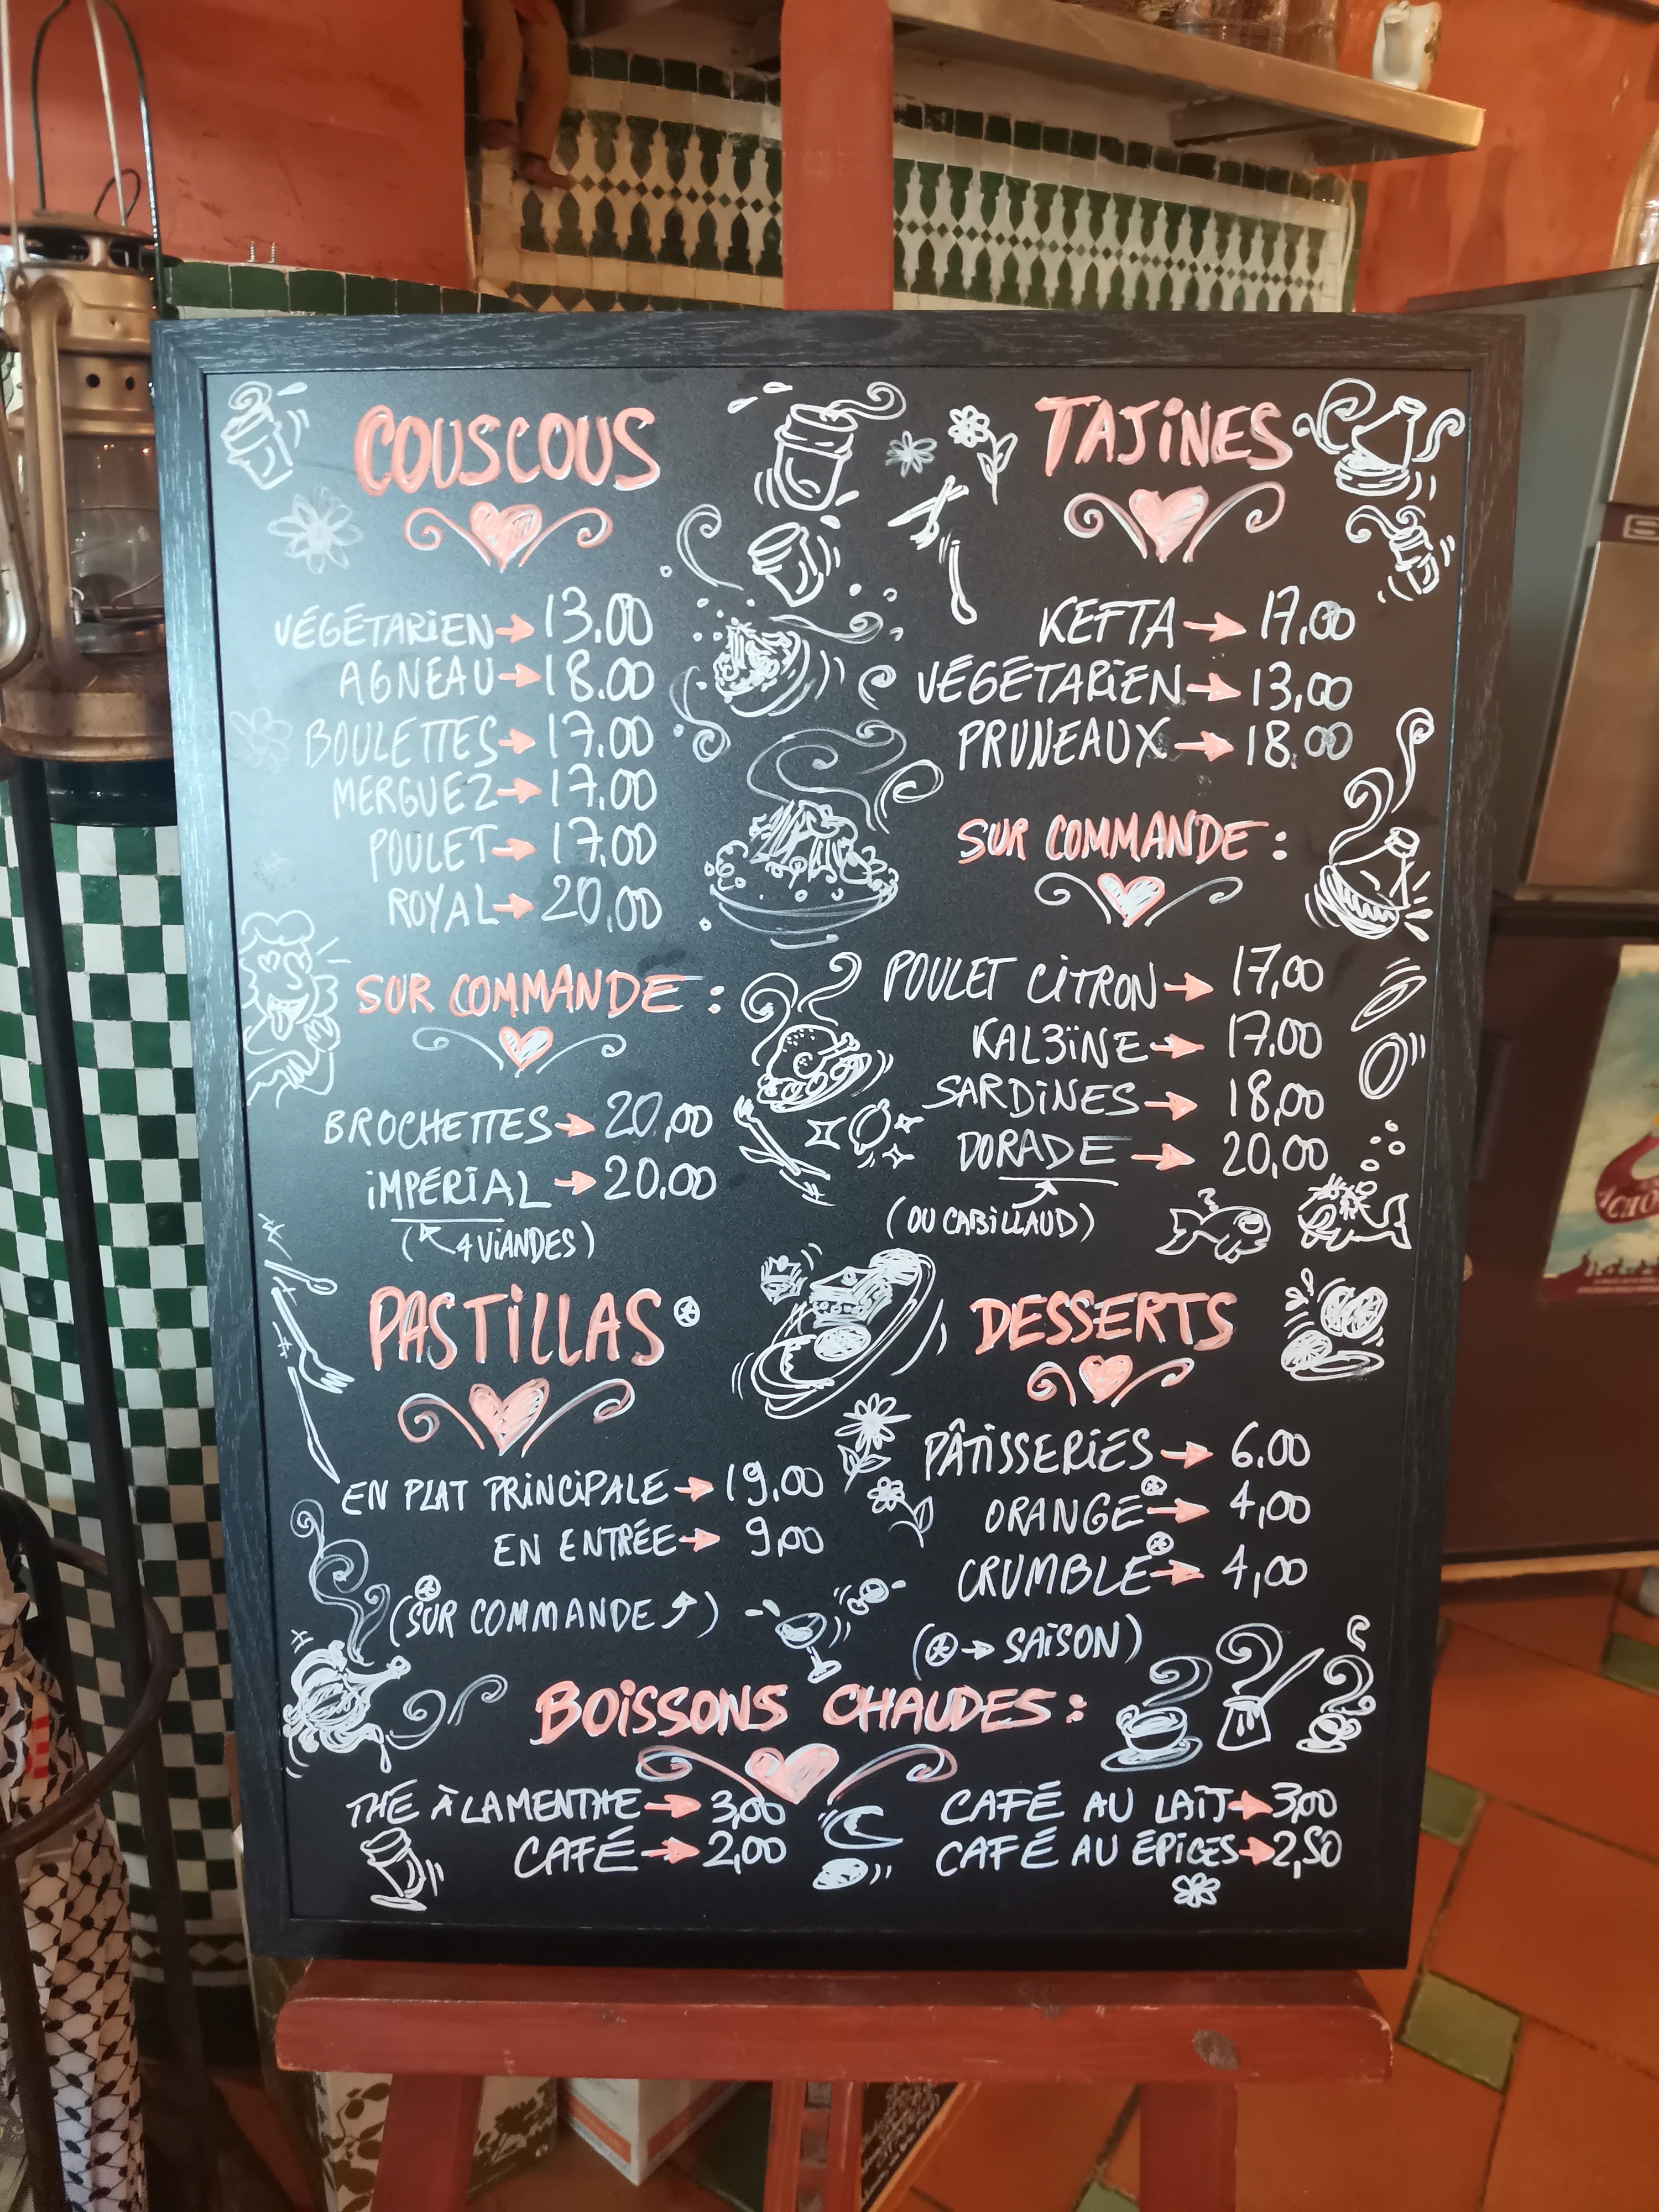 COUSCOUS
VÉGÉTARiEN→13.00
AGNEAU→18.00
BOULETTES→17.00
MERGUEZ→17.00
POULET→17.00
ROYAL→20,00
SUR COMMANDE :
BROCHETTES→20,00
iMPÉRiAL→20.00
(4 ViANDES)
TAJiNES
KEFTA→17,00
VÉGÉTARiEN→13,00
PRUNEAUX→18.00
SUR COMMANDE :
POULET CiTRON→17,00
KAL3ïNE→17.00
SARDiNES→18,00
DORADE→20,00
(OU CABiLLAUD)
PASTiLLAS⊛
EN PLAT PRiNCiPALE→19,00
EN ENTRÉE→9,00
(⊛SUR COMMANDE⤴)
DESSERTS
PÂTiSSERiES→6.00
ORANGE⊛→4,00
CRUMBLE⊛→4,00
(⊛→SAiSON)
BOiSSONS CHAUDES :
THÉ À LA MENTHE→3,00
CAFÉ→2,00
CAFÉ AU LAiT→3,00
CAFÉ AU ÉPiCES→2,50